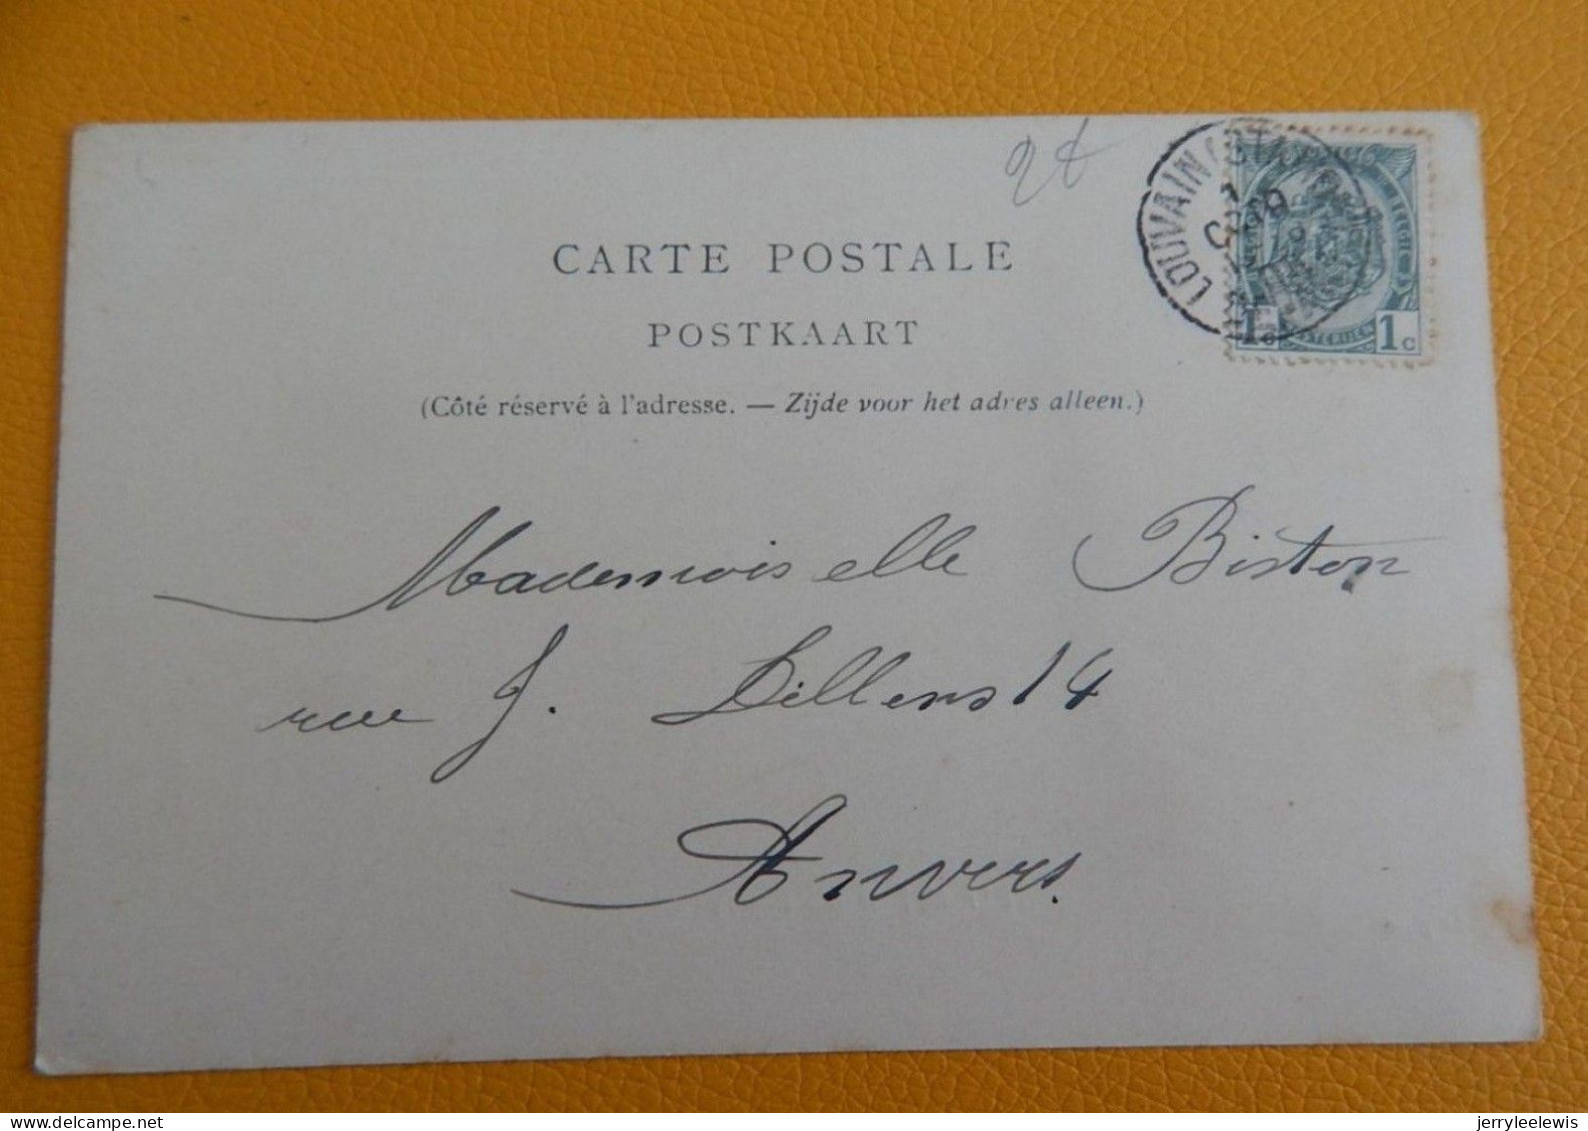 2t
LOUVAIN (STATION)
CARTE POSTALE
POSTKAART
1c 1c
(Côté réservé à l'adresse. — Zijde voor het adres alleen.)
Mademoiselle Biston
rue J. Lillens 14
Anvers.
delcampe.net
jerryleelewis